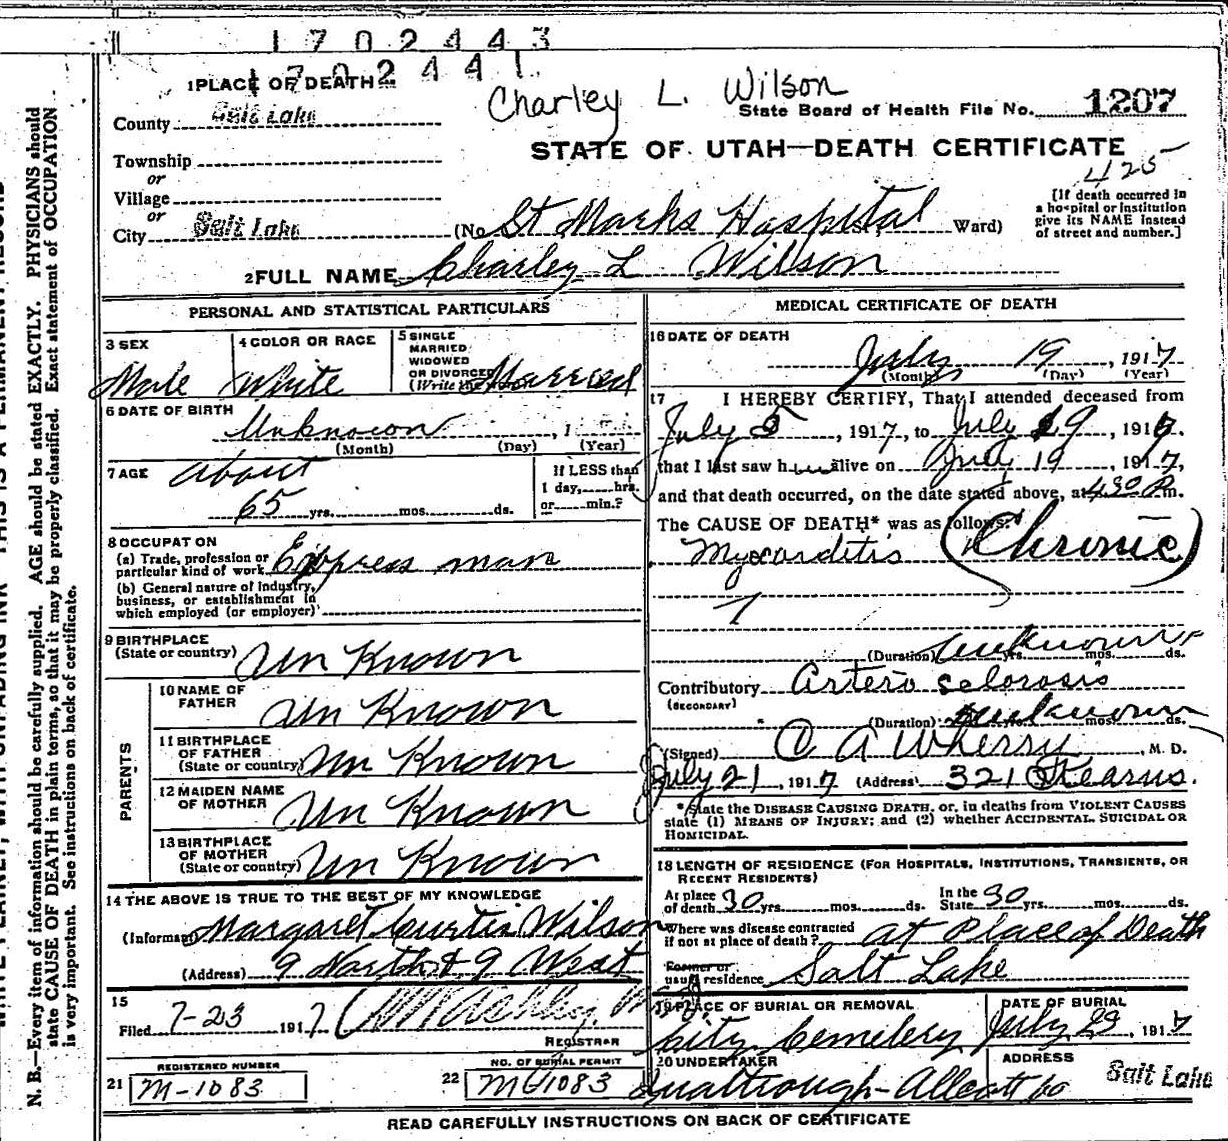 1702443
1702441
Charley L. Wilson
1 PLACE OF DEATH
State Board of Health File No. 1207
County Salt Lake
STATE OF UTAH—DEATH CERTIFICATE
Township
or
425
Village
or
City Salt Lake
(No St Marks Hospital Ward)
[If death occurred in
a hospital or institution
give its NAME instead
of street and number.]
2 FULL NAME Charley L Wilson
PERSONAL AND STATISTICAL PARTICULARS
3 SEX
Male
4 COLOR OR RACE
White
5 SINGLE
MARRIED
WIDOWED
OR DIVORCED
(Write the word)
Married
6 DATE OF BIRTH
Unknown , 1
(Month) (Day) (Year)
7 AGE
about
65 yrs. mos. ds.
If LESS than
1 day, hrs.
or min.?
8 OCCUPATION
(a) Trade, profession or
particular kind of work Express man
(b) General nature of industry,
business, or establishment in
which employed (or employer)
9 BIRTHPLACE
(State or country) Un Known
PARENTS
10 NAME OF
FATHER Un Known
11 BIRTHPLACE
OF FATHER
(State or country) Un Known
12 MAIDEN NAME
OF MOTHER Un Known
13 BIRTHPLACE
OF MOTHER
(State or country) Un Known
14 THE ABOVE IS TRUE TO THE BEST OF MY KNOWLEDGE
(Informant) Margaret Curtis Wilson
(Address) 9 North & 9 West
15
Filed 7-23 , 1917
REGISTRAR
REGISTERED NUMBER
21 M-1083
NO. OF BURIAL PERMIT
22 M1083
MEDICAL CERTIFICATE OF DEATH
16 DATE OF DEATH
July 19 , 1917
(Month) (Day) (Year)
17 I HEREBY CERTIFY, That I attended deceased from
July 5 , 1917, to July 19 , 1917.
that I last saw h alive on July 19 , 1917,
and that death occurred, on the date stated above, at 430 P m.
The CAUSE OF DEATH* was as follows:
Myocarditis (Chronic)
(Duration) unknown yrs. mos. ds.
Contributory Artero sclorosis
(SECONDARY)
(Duration) unknown mos. ds.
(Signed) C A Wherry , M. D.
July 21 , 1917 (Address) 321 Kearns.
*State the DISEASE CAUSING DEATH, or, in deaths from VIOLENT CAUSES
state (1) MEANS OF INJURY; and (2) whether ACCIDENTAL, SUICIDAL OR
HOMICIDAL.
18 LENGTH OF RESIDENCE (FOR HOSPITALS, INSTITUTIONS, TRANSIENTS, OR
RECENT RESIDENTS)
At place
of death 30 yrs. mos. ds.
In the
State 30 yrs. mos. ds.
Where was disease contracted
if not at place of death? at Place of Death
Former or
usual residence Salt Lake
19 PLACE OF BURIAL OR REMOVAL
City Cemetery
DATE OF BURIAL
July 23 , 1917
20 UNDERTAKER
ADDRESS
Salt Lake
READ CAREFULLY INSTRUCTIONS ON BACK OF CERTIFICATE
N. B.—Every item of information should be carefully supplied. AGE should be stated EXACTLY. PHYSICIANS should
state CAUSE OF DEATH in plain terms, so that it may be properly classified. Exact statement of OCCUPATION
is very important. See instructions on back of certificate.